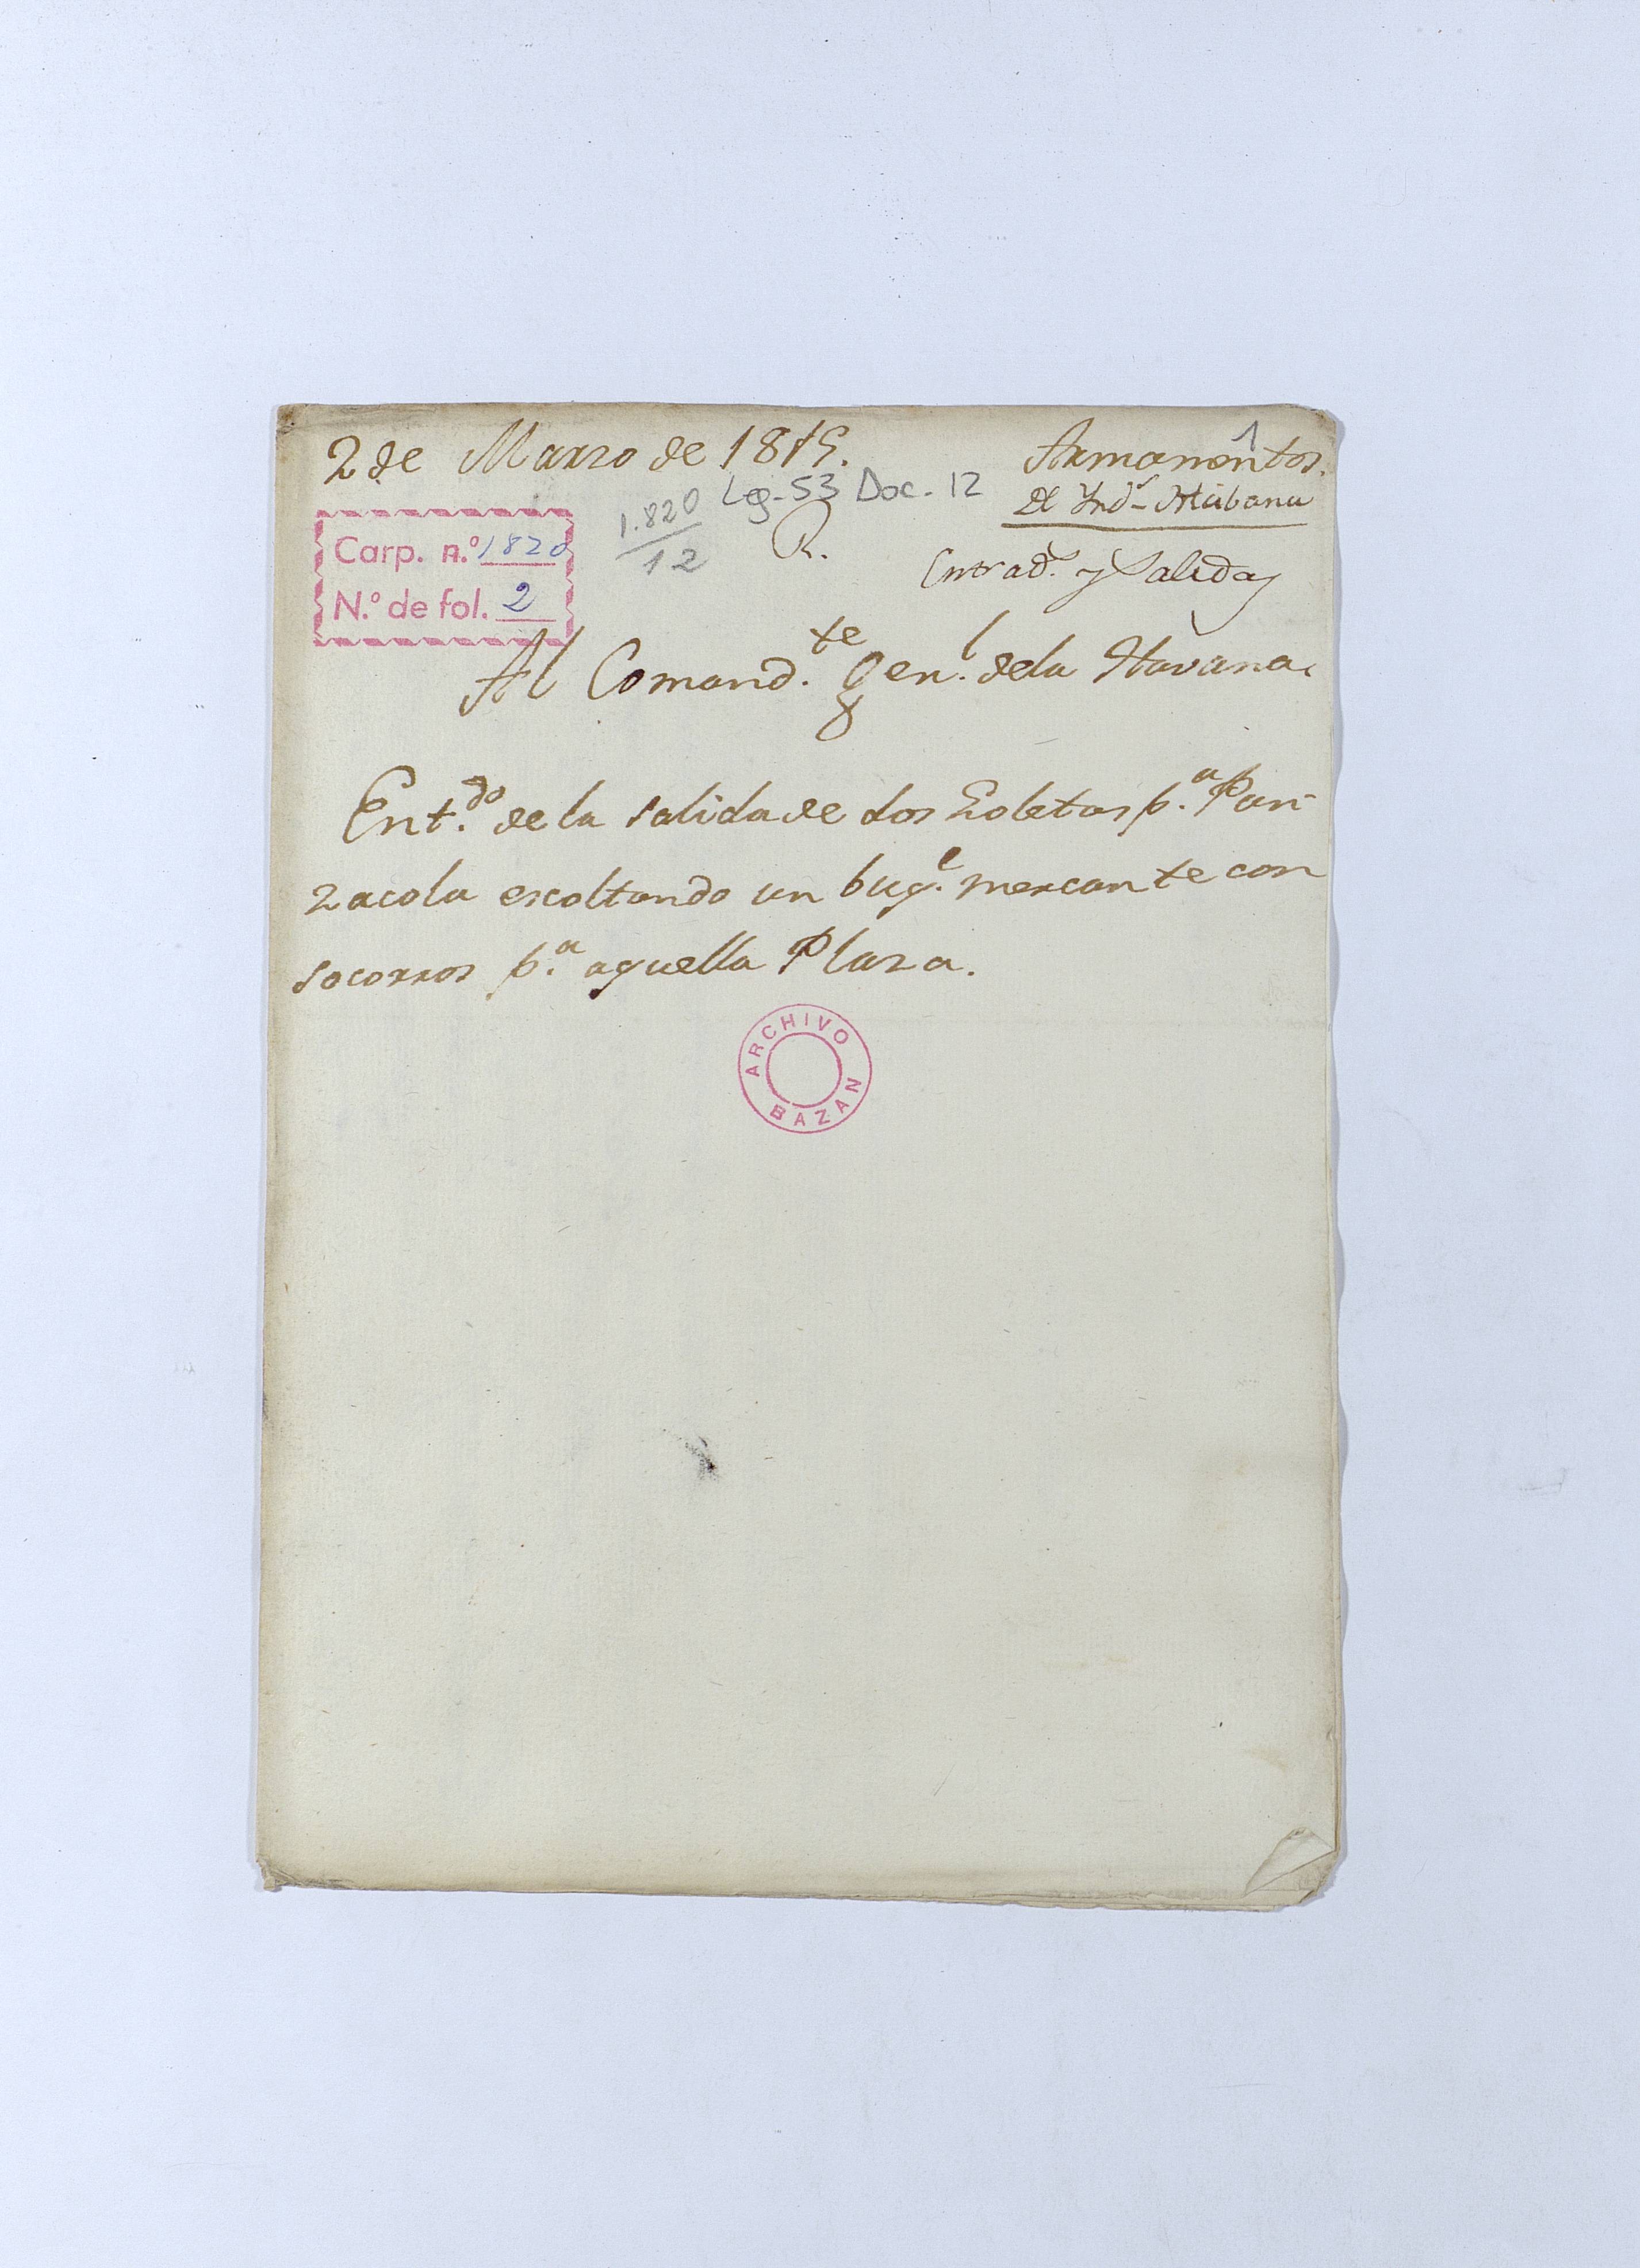 2 de Marzo de 1815.
Armamentos.
1
Leg-53 Doc. 12
1.820
12
R.
El Ynd.s Habana
Entrad.s y Salidas
Carp. n.º 1820
N.º de fol. 2
Al Comand.te Gen.l de la Havana.
Ent.do de la salida de dos Goletas p.a Pan
zacola escoltando un buq.e mercante con
socorros p.a aquella Plaza.
ARCHIVO BAZAN